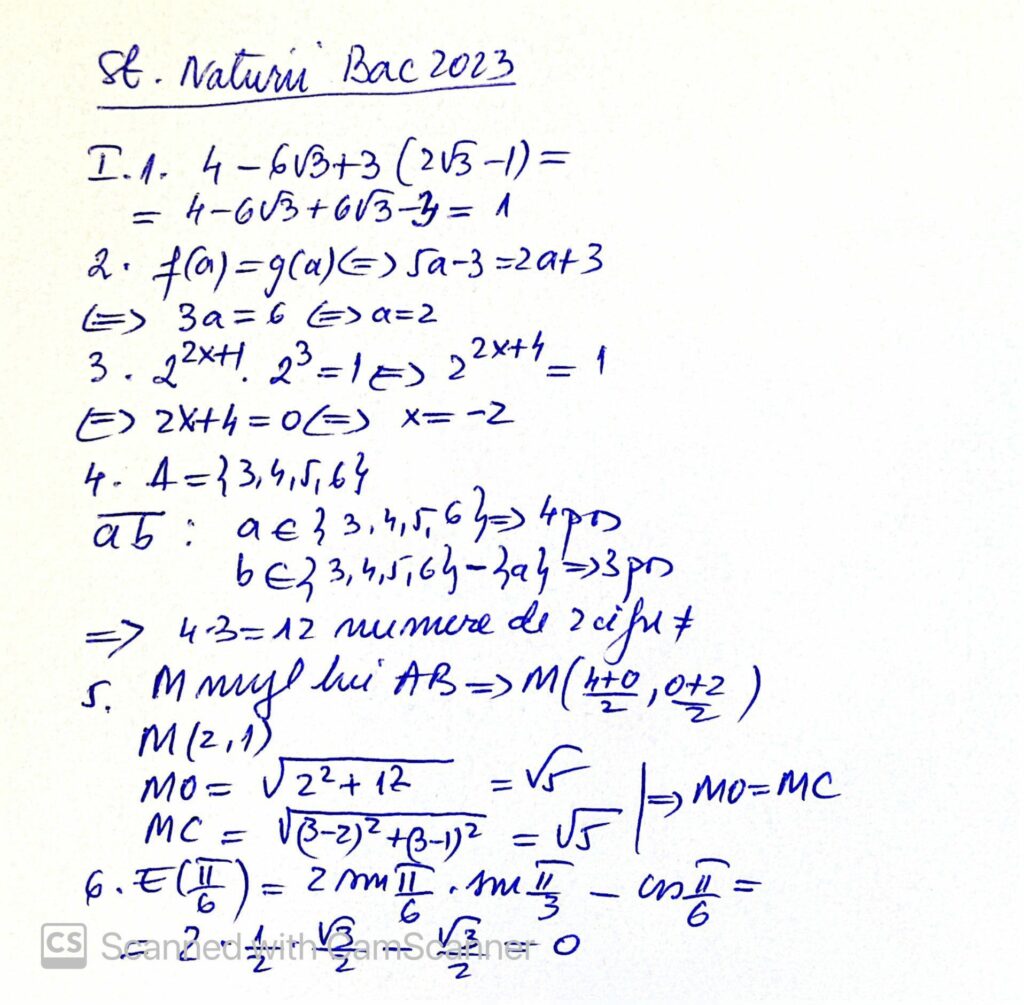 St. Naturii Bac 2023
I.1. 4-6√3+3(2√3-1)=
= 4-6√3+6√3-3= 1
2. f(a)=g(a)<=>5a-3=2a+3
<=> 3a=6 <=>a=2
3. 2^{2x+1}. 2^3=1<=> 2^{2x+4}= 1
<=> 2x+4=0<=> x=-2
4. A={3,4,5,6}
\overline{ab}: a∈{3,4,5,6}=>4pos
b∈{3,4,5,6}-{a}=>3pos
=> 4·3=12 numere de 2 cifre ≠
5. M mijl lui AB=>M(\frac{4+0}{2},\frac{0+2}{2})
M(2,1)
MO= √(2²+1²) =√5 |=> MO=MC
MC = √((3-2)²+(3-1)²) = √5
6. E(\frac{π}{6})= 2 sin\frac{π}{6}. sin\frac{π}{3} - cos\frac{π}{6}=
= 2·\frac{1}{2}·\frac{√3}{2}-\frac{√3}{2}= 0
CS Scanned with CamScanner